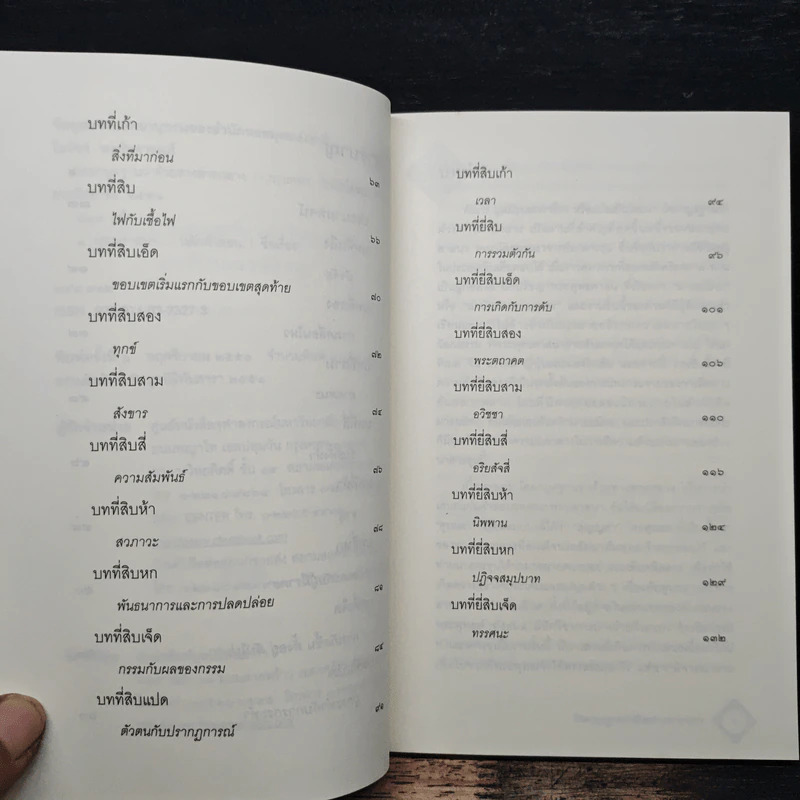 บทที่เก้า
สิ่งที่มาก่อน ๖๓
บทที่สิบ
ไฟกับเชื้อไฟ ๖๖
บทที่สิบเอ็ด
ขอบเขตเริ่มแรกกับขอบเขตสุดท้าย ๗๐
บทที่สิบสอง
ทุกข์ ๗๒
บทที่สิบสาม
สังขาร ๗๔
บทที่สิบสี่
ความสัมพันธ์ ๗๖
บทที่สิบห้า
สวภาวะ ๗๘
บทที่สิบหก
พันธนาการและการปลดปล่อย ๘๑
บทที่สิบเจ็ด
กรรมกับผลของกรรม ๘๔
บทที่สิบแปด
ตัวตนกับปรากฏการณ์ ๙๑
บทที่สิบเก้า
เวลา ๙๔
บทที่ยี่สิบ
การรวมตัวกัน ๙๖
บทที่ยี่สิบเอ็ด
การเกิดกับการดับ ๑๐๑
บทที่ยี่สิบสอง
พระตถาคต ๑๐๖
บทที่ยี่สิบสาม
อวิชชา ๑๑๐
บทที่ยี่สิบสี่
อริยสัจสี่ ๑๑๖
บทที่ยี่สิบห้า
นิพพาน ๑๒๔
บทที่ยี่สิบหก
ปฏิจจสมุปบาท ๑๒๙
บทที่ยี่สิบเจ็ด
ทรรศนะ ๑๓๒